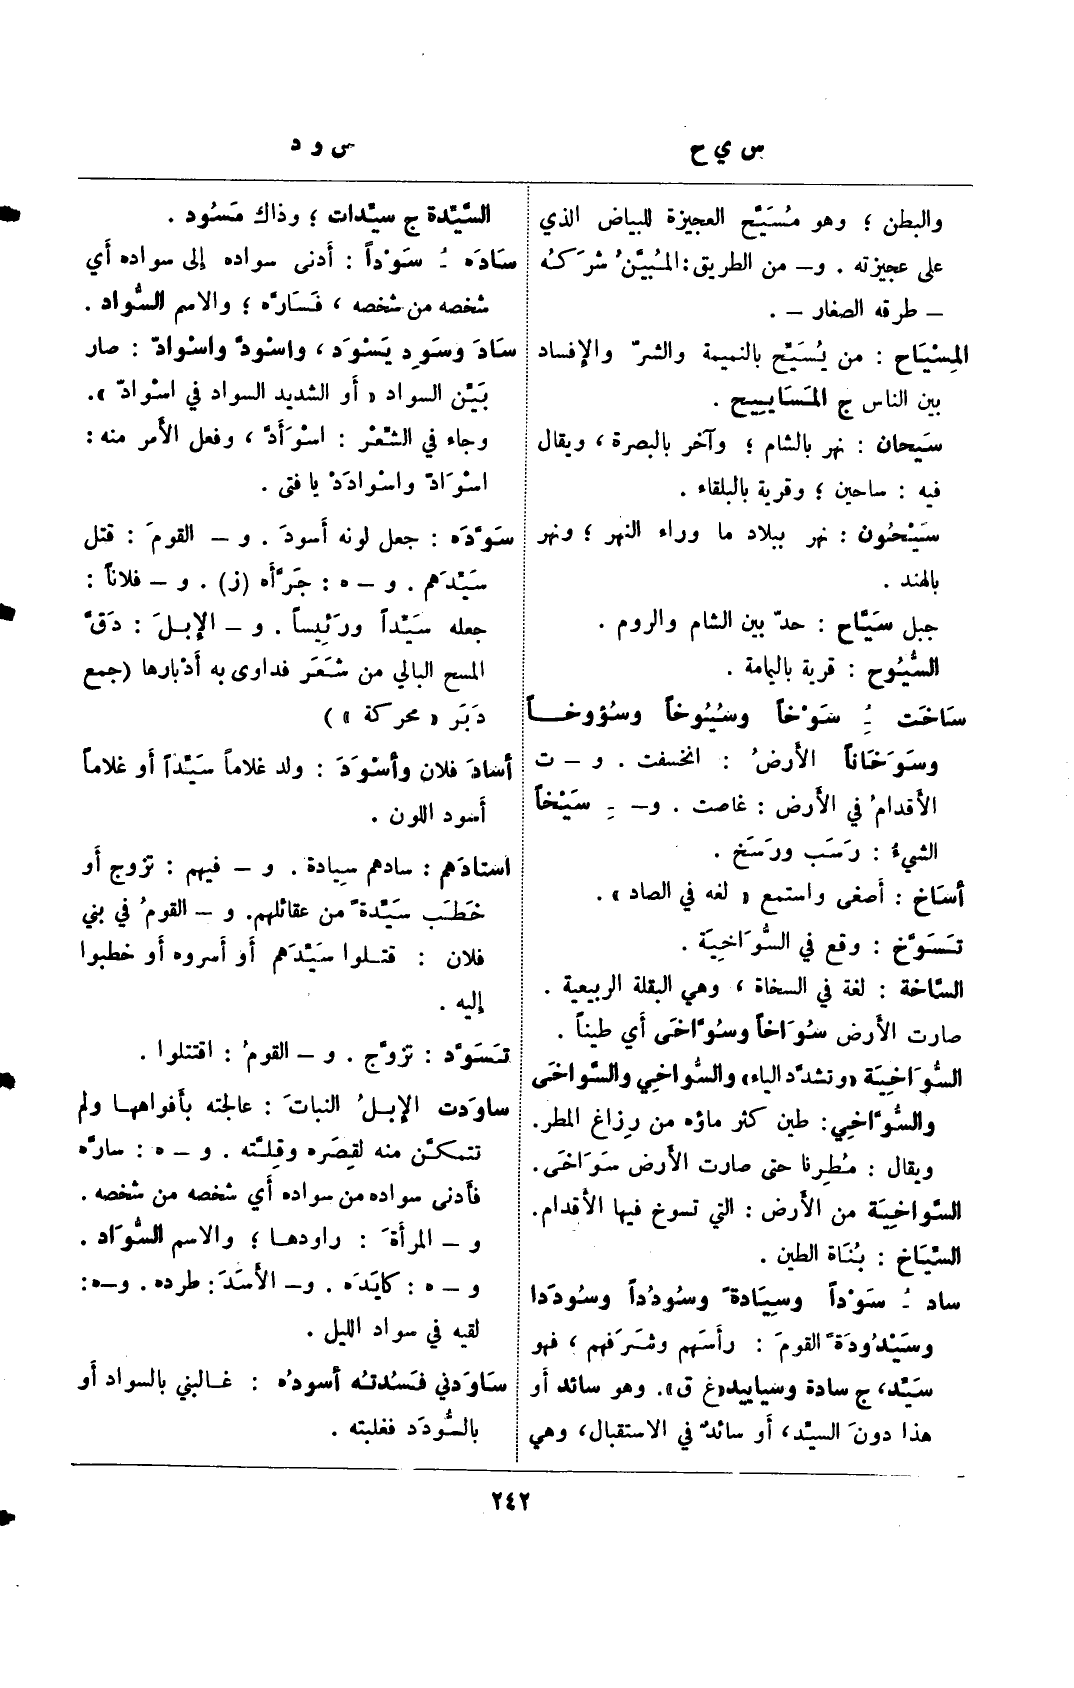 س ي ح
س و د
والبطن ؛ وهو مُسَيَّح العجيزة للبياض الذي
على عجيزته . و– من الطريق : المُبيَّنُ شَرَكُه
– طرقه الصغار – .
المِسْيَاح : من يُسَيِّح بالنميمة والشرّ والإفساد
بين الناس ج المَسَايِيح .
سَيحان : نهر بالشام ؛ وآخر بالبصرة ، ويقال
فيه : ساحين ؛ وقرية بالبلقاء .
سَيْحُون : نهر ببلاد ما وراء النهر ؛ ونهر
بالهند .
جبل سَيَّاح : حدّ بين الشام والروم .
السُّيُوح : قرية باليمامة .
سَاخَت ـُ سَوْخاً وسُيُوخاً وسُؤوخـاً
وسَوَخَاناً الأرضُ : انخسفت . و – ت
الأقدامُ في الأرض : غاصت . و– ـِ سَيْخاً
الشيءُ : رَسَب ورَسَخ .
أسَاخ : أصغى واستمع « لغه في الصاد » .
تَسَوَّخ : وقع في السُّوَاخِيَة .
السَّاخة : لغة في السخاة ، وهي البقلة الربيعية .
صارت الأرض سُوَاخاً وسُوَّاخَى أي طيناً .
السُّوَاخِيَة «وتشدَّد الياء» والسُّواخي والسَّواخَى
والسُّوَّاخِي : طين كثر ماؤه من رِزاغ المطر.
ويقال : مُطِرنا حتى صارت الأرض سَوَاخَى.
السَّواخِيَة من الأرض : التي تسوخ فيها الأقدام.
السِّيَاخ : بُنَاة الطين .
ساد ـُ سَوْداً وسِيَادةً وسُودُداً وسُودَدا
وسَيْدُودَةً القومَ : رأسَهم وشَرَفهم ، فهو
سَيِّد، ج سادة وسياييد«غ ق». وهو سائد أو
هذا دونَ السيِّد، أو سائدٌ في الاستقبال، وهي
السَّيِّدة ج سيِّدات ؛ وذاك مَسُود .
سَادَه ـُ سَوْداً : أدنى سواده إلى سواده أي
شخصه من شخصه ، فَسَارَّه ؛ والاسم السُّواد .
سَادَ وسَوِد يَسْوَد ، واسْودَّ واسْوادّ : صار
بَيِّن السواد « أو الشديد السواد في اسْوادّ ».
وجاء في الشِّعْر : اسْوَأَدَّ ، وفعل الأمر منه :
اسْوَادّ واسْوادَدْ يا فتى .
سَوَّدَه : جعل لونه أسودَ . و – القومَ : قتل
سَيِّدَهم . و – ه : جَرَّأه (ز) . و – فلاناً :
جعله سَيِّداً ورَئيساً . و – الإبـلَ : دَقَّ
المسح البالي من شَعَر فداوى به أدْبارها (جمع
دَبَر « محركة » )
أسَادَ فلان وأسْوَدَ : ولد غلاماً سَيِّداً أو غلاماً
أسود اللون .
استادَهم : سادهم سِيادة . و – فيهم : تزوج أو
خَطَب سَيِّدةً من عقائلهم. و – القومُ في بني
فلان : قتـلوا سيِّدَهم أو أسروه أو خطبوا
إليه .
تَسَوَّد : تزوَّج . و – القومُ : اقتتلوا .
ساوَدت الإبـلُ النباتَ : عالجته بأفواههـا ولم
تتمكـن منه لقِصَره وقِلَّته . و – ه : سارَّه
فأدنى سواده من سواده أي شخصه من شخصه .
و – المرأةَ : راودهـا ؛ والاسم السُّوَاد .
و – ه : كايَدَه . و– الأسَدَ : طرده . و–ه:
لقيه في سواد الليل .
سَاوَدني فَسُدتُه أسودُه : غـالبني بالسواد أو
بالسُّودَد فغلبته .
٢٤٢